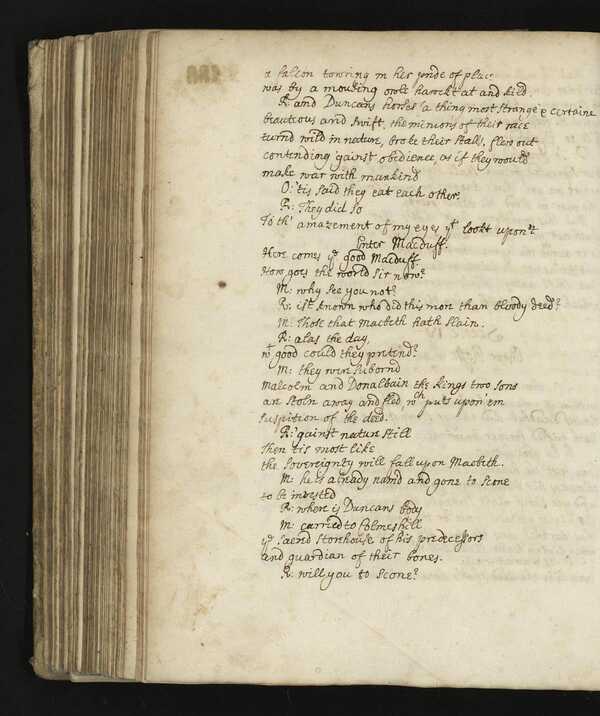 a falcon towring in his pride of place
was by a mousing owle hawckt at and kild.
R: and Duncans horses (a thing most strange & certaine
beauteous and swift, the minions of their race
turnd wild in nature, broke their stalls, flew out
contending 'gainst obedience, as if they would
make war with mankind
O: 'tis said they eat each other.
R: They did so
To th' amazement of my eyes yt lookt upon't
Enter Macduff.
Here comes ye good Macduff
How goes the world Sir now?
M: why see you not?
R: ist known who did this more than bloody deed?
M: Those that Macbeth hath slain.
R: alas the day,
wt good could they pretend?
M: they were subornd
Malcolm and Donalbain the kings two sons
are stoln away and fled, wch puts upon 'em
suspition of the deed.
R: 'gainst nature still
then tis most like
the sovereignty will fall upon Macbeth.
M: he is already namd and gone to Scone
to be invested
R: where is Duncans body
M: carried to Colmeskill
ye sacred storehouse of his predecessors
and guardian of their bones.
R: will you to Scone?